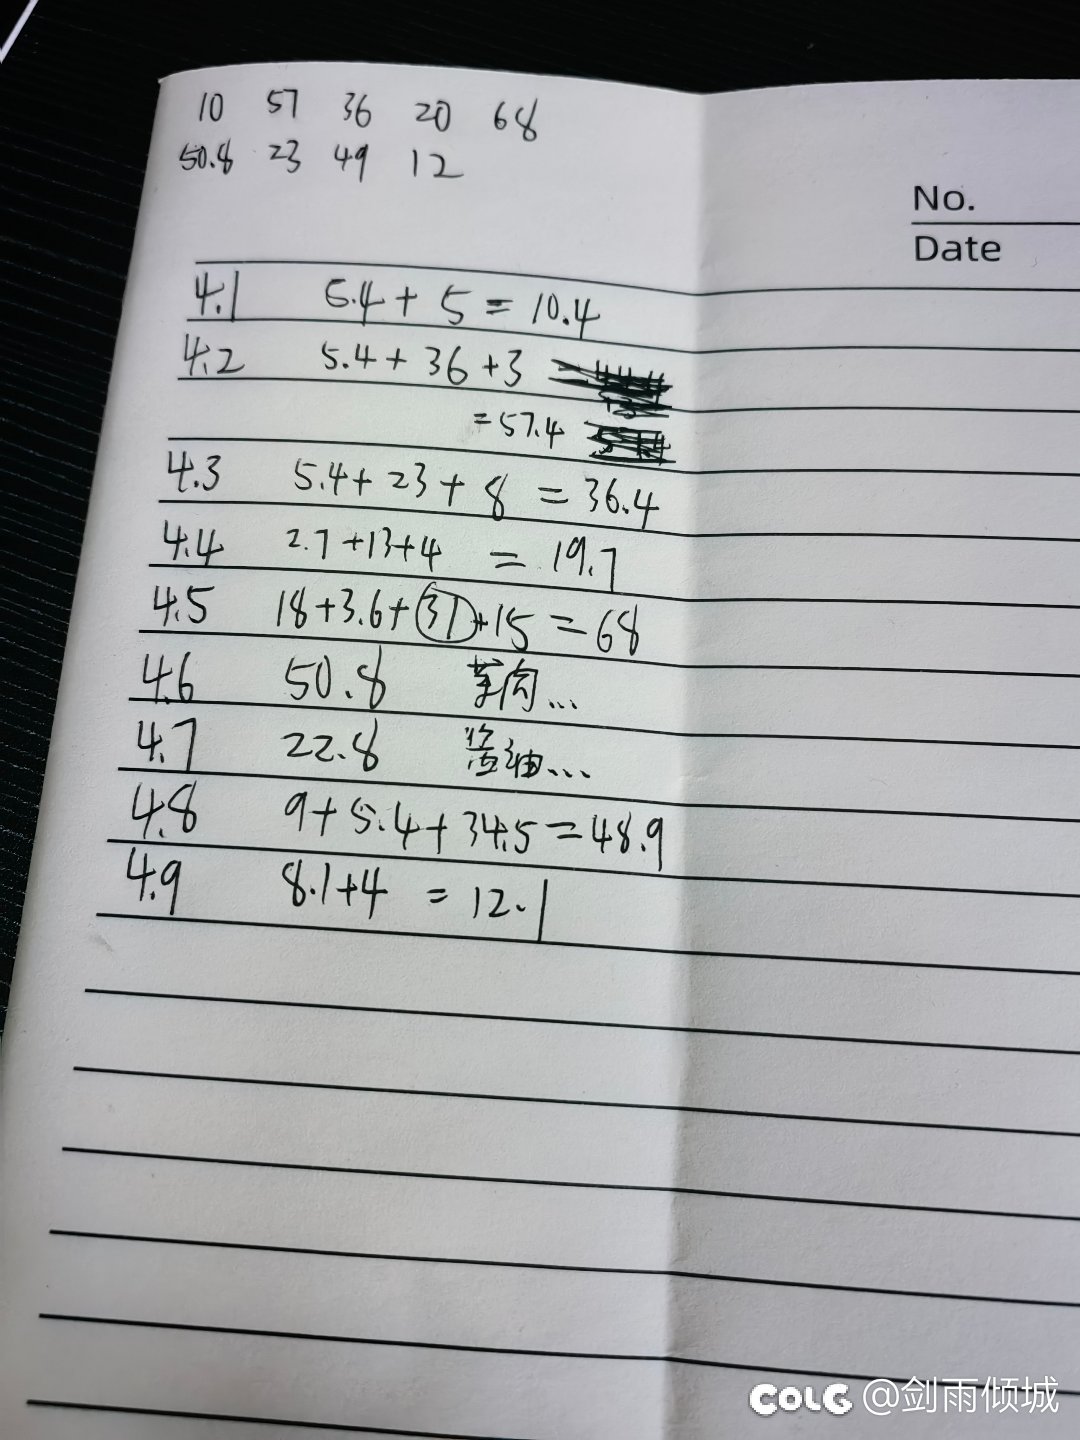 10 57 36 20 68
50.8 23 49 12
No.
Date
4.1 5.4 + 5 = 10.4
4.2 5.4 + 36 + 3
= 57.4
4.3 5.4 + 23 + 8 = 36.4
4.4 2.7 + 13 + 4 = 19.7
4.5 18 + 3.6 + 31 + 15 = 68
4.6 50.8 羊肉...
4.7 22.8 酱油...
4.8 9 + 5.4 + 34.5 = 48.9
4.9 8.1 + 4 = 12.1
COLG @剑雨倾城